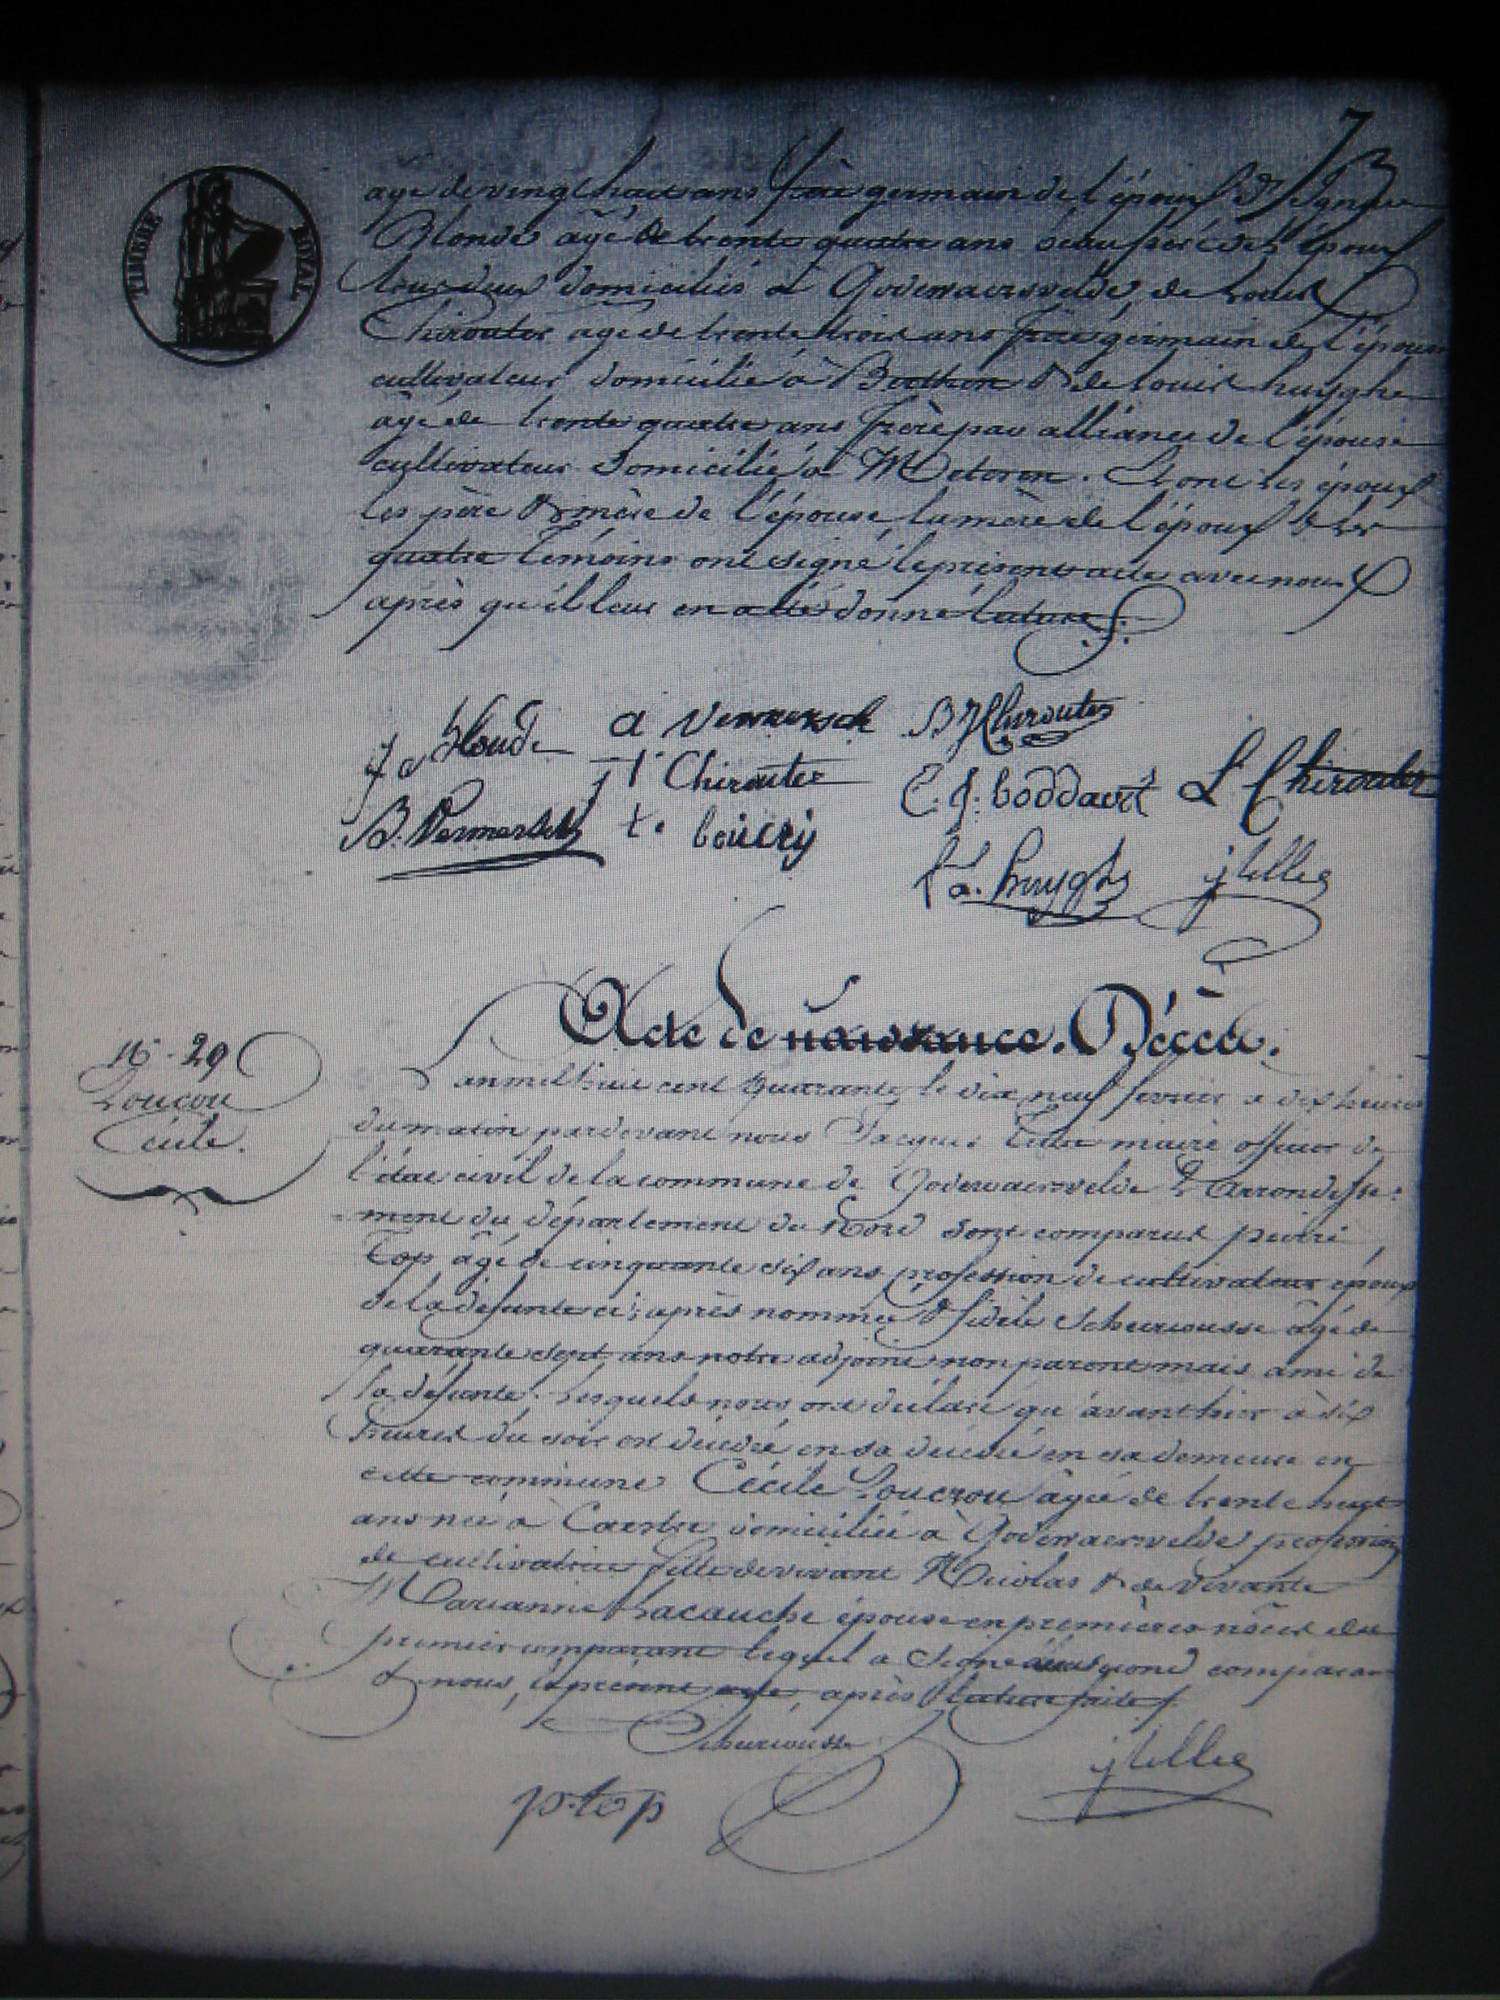 73
TIMBRE ROYAL
age de vingt huit ans frère germain de l'époux & d'Ignace
Blonde âgé de trente quatre ans beau frère de l'époux
tous deux domiciliés à Godewaersvelde, de Louis
Chirouter âgé de trente trois ans frère germain de l'épouse
cultivateur domicilié à Berthen & de Louis huyghe
âgé de trente quatre ans frère par alliance de l'épouse
cultivateur domicilié à Meteren. Et ont les époux
les père & mère de l'épouse la mère de l'époux & les
quatre témoins ont signé le présent acte avec nous
après qu'il leur en a été donné lecture.
blonde a Vermersch B J Chirouter
j l Chirouter C. J. boddaert L Chirouter
B. Vermersch t. boucry
L a. huyghe j tellie
Acte de naissance. Décès.
N° 29
Loucou
Cécile.
L'an mil huit cent quarante, le dix neuf fevrier a dix heures
du matin pardevant nous Jacques Tellie maire officier de
l'état civil de la commune de Godewaersvelde 2 Arrondisse-
ment du département du Nord sont comparus pierre
Top âgé de cinquante six ans profession de cultivateur époux
de la défunte ci-après nommée & fidèle Scheriousse âgé de
quarante sept ans notre adjoint non parent mais ami de
la défunte. Lesquels nous ont déclaré qu'avanthier à six
heures du soir est décédée en sa décédé en sa demeure en
cette commune Cécile Loucou âgée de trente huit
ans née à Caestre domiciliée à Godewaersvelde profession
de cultivatrice fille de vivant Nicolas & de vivante
Marianne Lacauche épouse en premières nôces du
premier comparant lequel a signé second comparant
& nous, le présent acte, après lecture faite.
Scheriousse
p. top j tellie